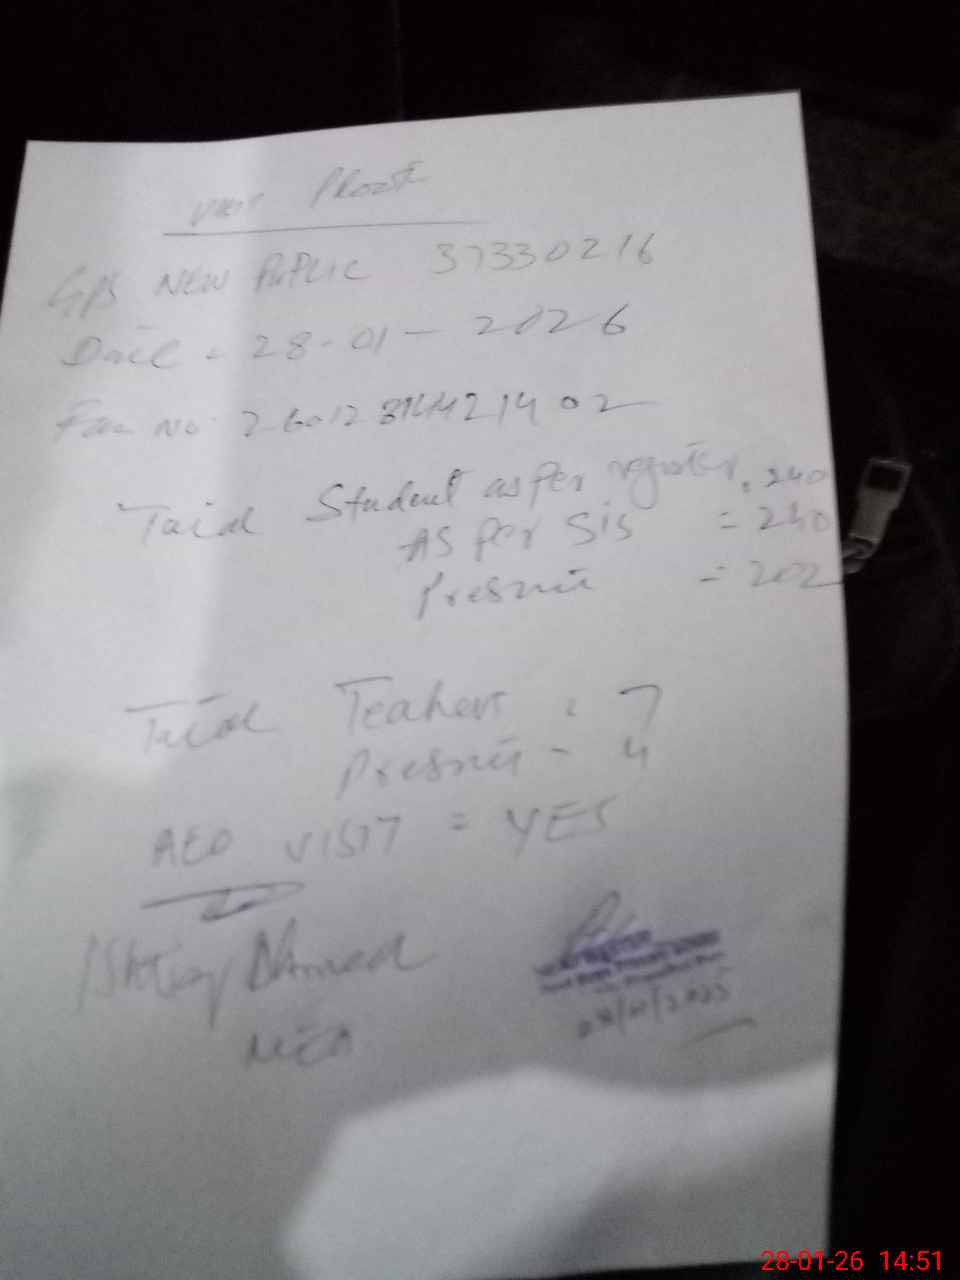 Visit Proof
GPS NEW PUPLIC 37330216
Date = 28-01-2026
No 2601281444214 02
Total Student as per register = 240
AS Per SiS = 240
Present = 202
Total Teahers = 7
Present - 4
AEO VISIT = YES
Ahmed
MEA
28-01-26 14:51